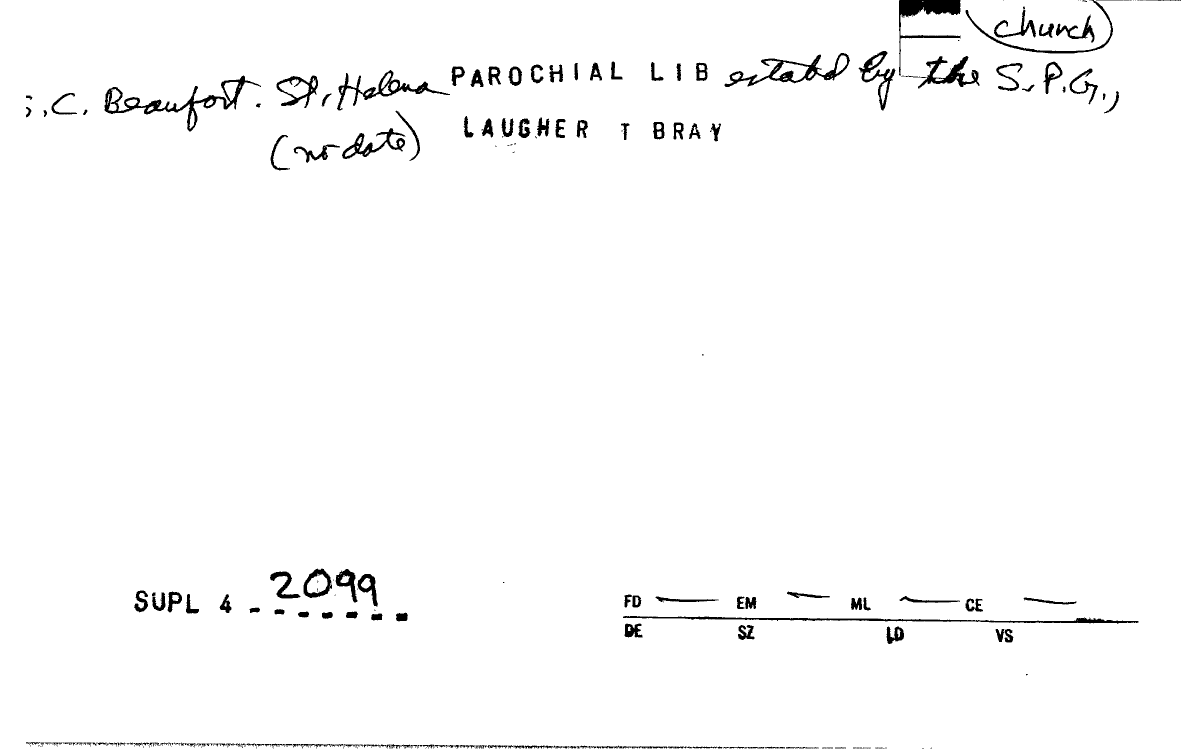 church
S.C. Beaufort. St. Helena PAROCHIAL LIB estabd by the S.P.G.,
(no date) LAUGHER T BRAY
SUPL 4 - 2099
FD EM ML CE
DE SZ LD VS